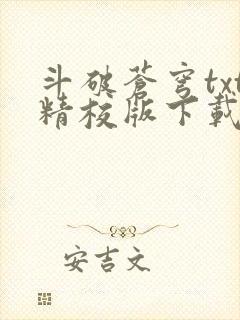 斗破蒼穹txt
精校版下載
安吉文